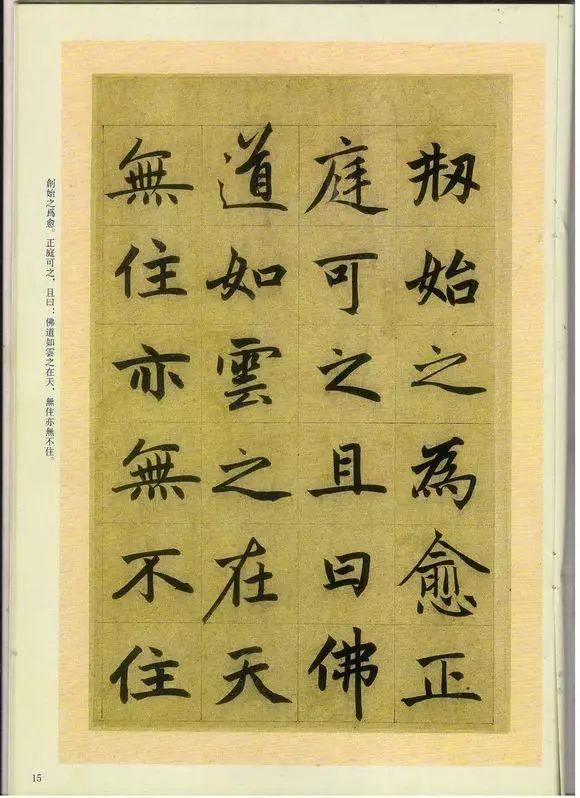 刱始之為愈正
庭可之且曰佛
道如雲之在天
無住亦無不住
創始之爲愈。正庭可之，且曰：佛道如雲之在天、無住亦無不住。
15